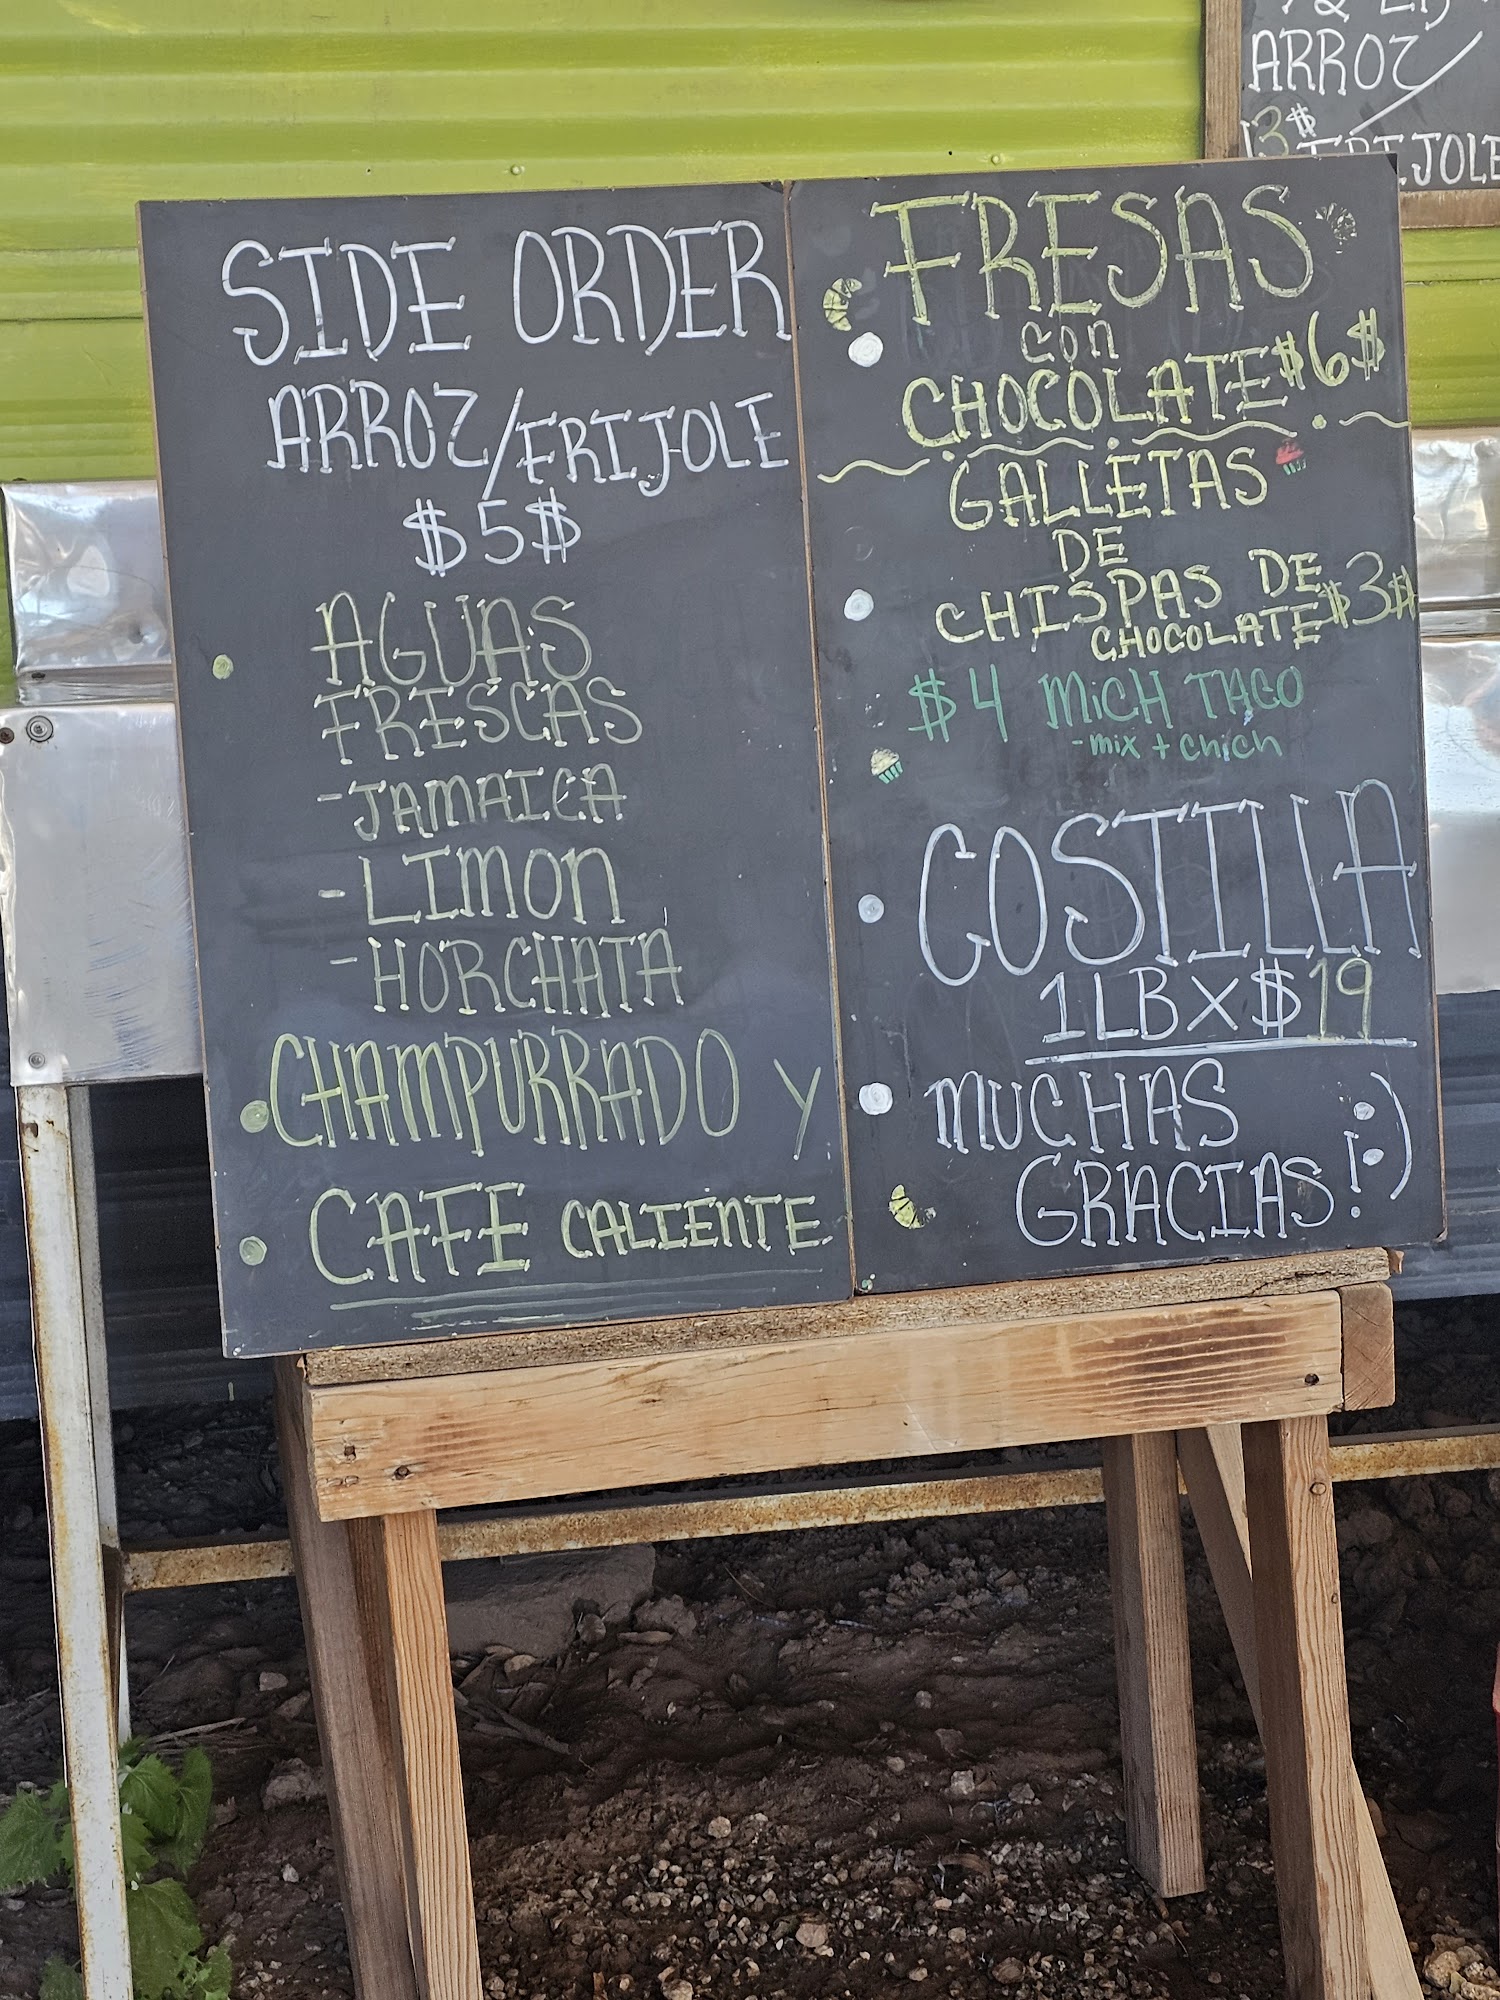 SIDE ORDER
ARROZ/FRIJOLE
$5$
AGUAS
FRESCAS
-JAMAICA
-LIMON
-HORCHATA
CHAMPURRADO Y
CAFE CALIENTE
FRESAS
CON
CHOCOLATE $6$
GALLETAS
DE
CHISPAS DE
CHOCOLATE $3$
$4 MiCH TACO
-mix + chich
COSTILLA
1LB X $19
MUCHAS
GRACIAS! :)
ARROZ/
13$
FRIJOLE